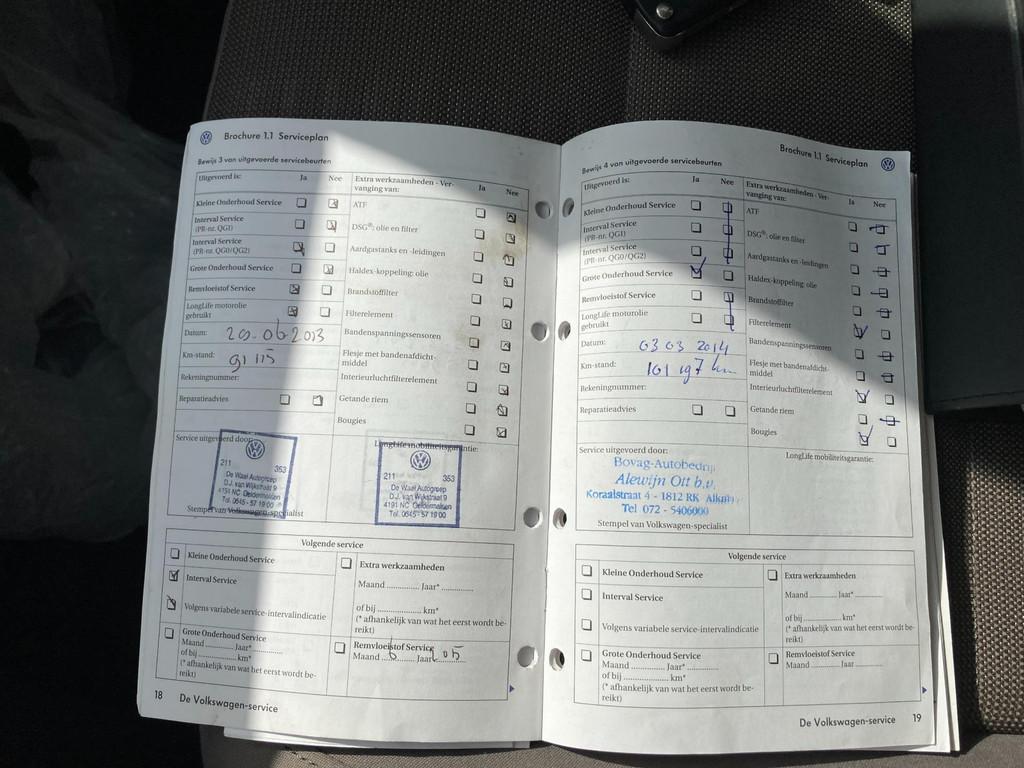 Brochure 1.1 Serviceplan
Bewijs 3 van uitgevoerde servicebeurten
Uitgevoerd is: Ja Nee
Kleine Onderhoud Service
Interval Service
(PR-nr. QG1)
Interval Service
(PR-nr. QG0/QG2)
Grote Onderhoud Service
Remvloeistof Service
LongLife motorolie
gebruikt
Datum: 20.06.2013
Km-stand: 91 115
Rekeningnummer:
Reparatieadvies
Extra werkzaamheden - Ver-
vanging van: Ja Nee
ATF
DSG®: olie en filter
Aardgastanks en -leidingen
Haldex-koppeling: olie
Brandstoffilter
Filterelement
Bandenspanningssensoren
Flesje met bandenafdicht-
middel
Interieurluchtfilterelement
Getande riem
Bougies
Service uitgevoerd door:
211 353
De Waal Autogroep
D.J. van Wijkstraat 9
4191 NC Geldermalsen
Tel. 0345 - 57 19 00
Stempel van Volkswagen-specialist
LongLife mobiliteitsgarantie:
211 353
De Waal Autogroep
D.J. van Wijkstraat 9
4191 NC Geldermalsen
Tel. 0345 - 57 19 00
Volgende service
Kleine Onderhoud Service
Interval Service
Volgens variabele service-intervalindicatie
Grote Onderhoud Service
Maand ......... Jaar*...........
of bij .................. km*
(* afhankelijk van wat het eerst wordt be-
reikt)
Extra werkzaamheden
Maand .............. Jaar*..............
of bij ....................... km*
(* afhankelijk van wat het eerst wordt be-
reikt)
Remvloeistof Service
Maand 6 Jaar 2015
18 De Volkswagen-service
Brochure 1.1 Serviceplan
Bewijs 4 van uitgevoerde servicebeurten
Uitgevoerd is: Ja Nee
Kleine Onderhoud Service
Interval Service
(PR-nr. QG1)
Interval Service
(PR-nr. QG0/QG2)
Grote Onderhoud Service
Remvloeistof Service
LongLife motorolie
gebruikt
Datum: 03 03 2014
Km-stand: 101 197 km
Rekeningnummer:
Reparatieadvies
Extra werkzaamheden - Ver-
vanging van: Ja Nee
ATF
DSG®: olie en filter
Aardgastanks en -leidingen
Haldex-koppeling: olie
Brandstoffilter
Filterelement
Bandenspanningssensoren
Flesje met bandenafdicht-
middel
Interieurluchtfilterelement
Getande riem
Bougies
Service uitgevoerd door:
Bovag-Autobedrijf
Alewijn Ott b.v.
Koraalstraat 4 - 1812 RK Alkm
Tel 072 - 5406000
Stempel van Volkswagen-specialist
LongLife mobiliteitsgarantie:
Volgende service
Kleine Onderhoud Service
Interval Service
Volgens variabele service-intervalindicatie
Grote Onderhoud Service
Maand ............ Jaar*............
of bij ....................... km*
(* afhankelijk van wat het eerst wordt be-
reikt)
Extra werkzaamheden
Maand .......... Jaar*..........
of bij ..................... km*
(* afhankelijk van wat het eerst wordt be-
reikt)
Remvloeistof Service
Maand .......... Jaar..........
De Volkswagen-service 19